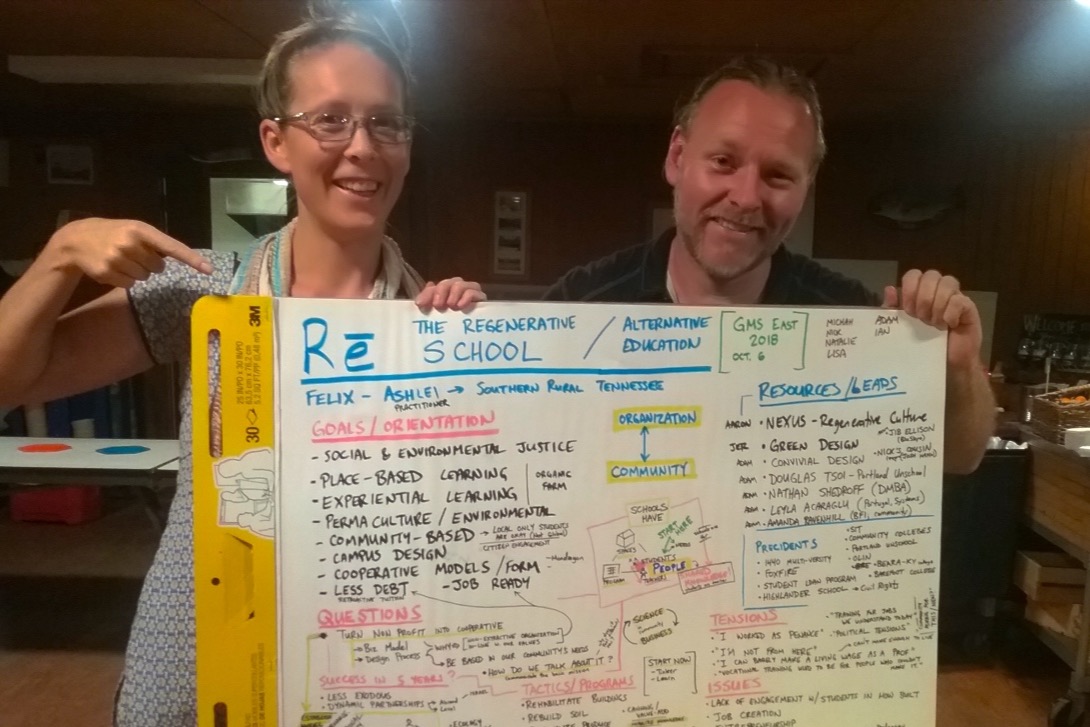 Rē THE REGENERATIVE SCHOOL / ALTERNATIVE EDUCATION
GMS EAST
2018
OCT. 6
MICHAH
NICK
NATALIE
LISA
ADAM
IAN
FELIX - ASHLEI → SOUTHERN RURAL TENNESSEE
PRACTITIONER
GOALS / ORIENTATION
- SOCIAL & ENVIRONMENTAL JUSTICE
- PLACE-BASED LEARNING
- EXPERIENTIAL LEARNING
ORGANIC
FARM
- PERMACULTURE / ENVIRONMENTAL
- COMMUNITY-BASED → LOCAL ONLY STUDENTS
CITIZEN ENGAGEMENT
- CAMPUS DESIGN
- COOPERATIVE MODELS / FORM
- LESS DEBT
- JOB READY
ORGANIZATION
COMMUNITY
SCHOOLS
HAVE
START HERE
SPACES
PROGRAM
STUDENTS
PEOPLE
RESOURCES / LEADS
AARON • NEXUS - Regenerative Culture
JIB ELLISON
JER • GREEN DESIGN
ADAM • CONVIVIAL DESIGN
- NICK'S COUSIN
ADAM • DOUGLAS TSOI - Portland Unschool
ADAM • NATHAN SHEDROFF (DMBA)
ADAM • LEYLA ACARAGLU
ADAM • AMANDA RAVENHILL (BFI, community)
PRECIDENTS
• FOXFIRE
• STUDENT LOAN PROGRAM
• HIGHLANDER SCHOOL → Civil Rights
• SIT
• COMMUNITY COLLEGES
• PORTLAND UNSCHOOL
• OLIN
• BEREA - KY
COLLEGE
QUESTIONS
• TURN NON PROFIT INTO COOPERATIVE
→ Biz Model
→ Design Process
WHY?
→ BE BASED IN OUR COMMUNITY'S NEEDS
• HOW DO WE TALK ABOUT IT?
SCIENCE
Community
BUSINESS
START NOW
- Learn
SUCCESS IN 5 YEARS?
• LESS EXODUS
• DYNAMIC PARTNERSHIPS
TACTICS / PROGRAMS
• REHABILITATE BUILDINGS
• REBUILD SOIL
TENSIONS
• "I WORKED AS PENANCE"
• "TRAINING FOR JOBS WE UNDERSTAND TODAY"
• "POLITICAL TENSIONS"
• "I'M NOT FROM HERE"
• "I CAN BARELY MAKE A LIVING WAGE AS A PROF"
• "VOCATIONAL TRAINING USED TO BE FOR PEOPLE WHO COULDN'T MAKE IT."
ISSUES
• LACK OF ENGAGEMENT W/ STUDENTS IN HOW BUILT
• JOB CREATION
30
3M
WELCOME